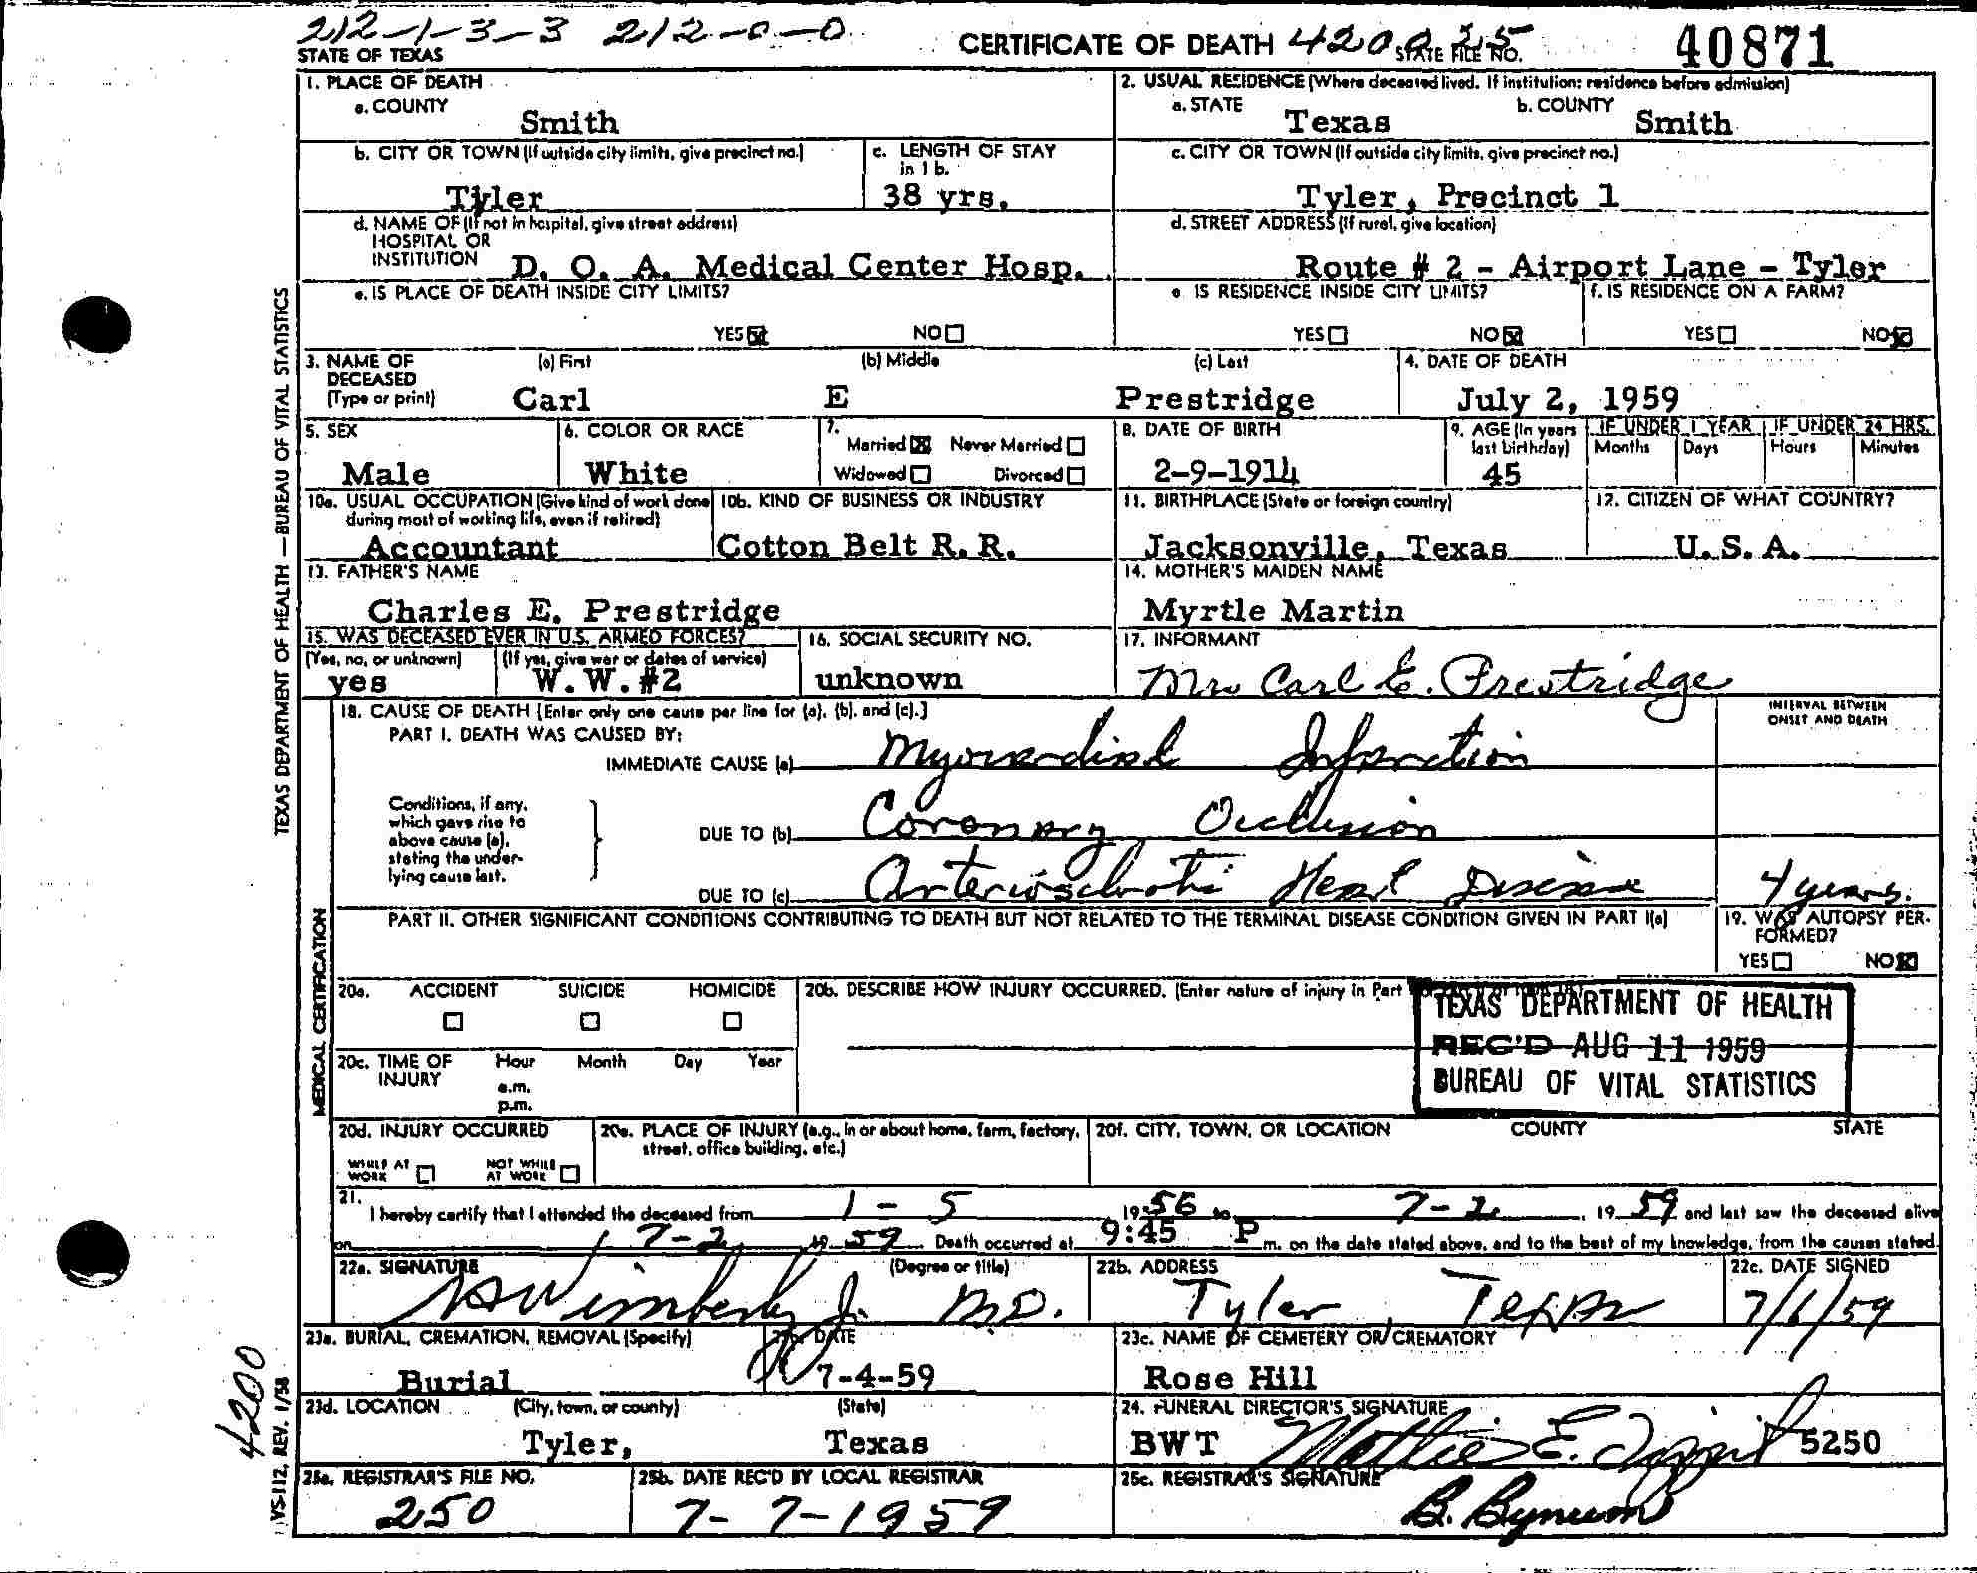 212-1-3-3 212-0-0
STATE OF TEXAS
CERTIFICATE OF DEATH 4200 STATE FILE NO. 40871
1. PLACE OF DEATH
a. COUNTY
Smith
2. USUAL RESIDENCE (Where deceased lived. If institution: residence before admission)
a. STATE b. COUNTY
Texas Smith
b. CITY OR TOWN (If outside city limits, give precinct no.)
Tyler
c. LENGTH OF STAY
in 1 b.
38 yrs.
c. CITY OR TOWN (If outside city limits, give precinct no.)
Tyler, Precinct 1
d. NAME OF (If not in hospital, give street address)
HOSPITAL OR
INSTITUTION D. O. A. Medical Center Hosp.
d. STREET ADDRESS (If rural, give location)
Route # 2 - Airport Lane - Tyler
e. IS PLACE OF DEATH INSIDE CITY LIMITS?
YES☒ NO☐
e IS RESIDENCE INSIDE CITY LIMITS?
YES☐ NO☒
f. IS RESIDENCE ON A FARM?
YES☐ NO☒
3. NAME OF (a) First (b) Middle (c) Last
DECEASED
(Type or print) Carl E Prestridge
4. DATE OF DEATH
July 2, 1959
5. SEX
Male
6. COLOR OR RACE
White
7.
Married☒ Never Married☐
Widowed☐ Divorced☐
8. DATE OF BIRTH
2-9-1914
9. AGE (In years
last birthday)
45
IF UNDER 1 YEAR IF UNDER 24 HRS.
Months Days Hours Minutes
10a. USUAL OCCUPATION (Give kind of work done
during most of working life, even if retired)
Accountant
10b. KIND OF BUSINESS OR INDUSTRY
Cotton Belt R.R.
11. BIRTHPLACE (State or foreign country)
Jacksonville, Texas
12. CITIZEN OF WHAT COUNTRY?
U.S.A.
13. FATHER'S NAME
Charles E. Prestridge
14. MOTHER'S MAIDEN NAME
Myrtle Martin
15. WAS DECEASED EVER IN U.S. ARMED FORCES?
(Yes, no, or unknown) (If yes, give war or dates of service)
yes W.W.#2
16. SOCIAL SECURITY NO.
unknown
17. INFORMANT
Mrs Carl E. Prestridge
18. CAUSE OF DEATH (Enter only one cause per line for (a), (b), and (c).)
INTERVAL BETWEEN
ONSET AND DEATH
PART I. DEATH WAS CAUSED BY:
IMMEDIATE CAUSE (a) Myocardial Infarction
Conditions, if any,
which gave rise to
above cause (a),
stating the under-
lying cause last.
DUE TO (b) Coronary Occlusion
DUE TO (c) Arteriosclerotic Heart Disease 4 years.
PART II. OTHER SIGNIFICANT CONDITIONS CONTRIBUTING TO DEATH BUT NOT RELATED TO THE TERMINAL DISEASE CONDITION GIVEN IN PART I(a)
19. WAS AUTOPSY PER-
FORMED?
YES☐ NO☒
20a. ACCIDENT SUICIDE HOMICIDE
☐ ☐ ☐
20b. DESCRIBE HOW INJURY OCCURRED. (Enter nature of injury in Part
TEXAS DEPARTMENT OF HEALTH
REC'D AUG 11 1959
BUREAU OF VITAL STATISTICS
20c. TIME OF Hour Month Day Year
INJURY a.m.
p.m.
20d. INJURY OCCURRED
WHILE AT WORK ☐ NOT WHILE AT WORK ☐
20e. PLACE OF INJURY (e.g., in or about home, farm, factory,
street, office building, etc.)
20f. CITY, TOWN, OR LOCATION COUNTY STATE
21.
I hereby certify that I attended the deceased from 1 - 5 1956 to 7-2 , 1959 and last saw the deceased alive
on 7-2 1959 Death occurred at 9:45 P m. on the date stated above, and to the best of my knowledge, from the causes stated.
22a. SIGNATURE (Degree or title)
Wimberly Jr. M.D.
22b. ADDRESS
Tyler, Texas
22c. DATE SIGNED
7/6/59
23a. BURIAL, CREMATION, REMOVAL (Specify)
Burial
23b. DATE
7-4-59
23c. NAME OF CEMETERY OR CREMATORY
Rose Hill
23d. LOCATION (City, town, or county) (State)
Tyler, Texas
24. FUNERAL DIRECTOR'S SIGNATURE
BWT Mattie E. 5250
25a. REGISTRAR'S FILE NO.
250
25b. DATE REC'D BY LOCAL REGISTRAR
7-7-1959
25c. REGISTRAR'S SIGNATURE
B. Bynum
TEXAS DEPARTMENT OF HEALTH — BUREAU OF VITAL STATISTICS
MEDICAL CERTIFICATION
VS-112, REV. 1/58
4200